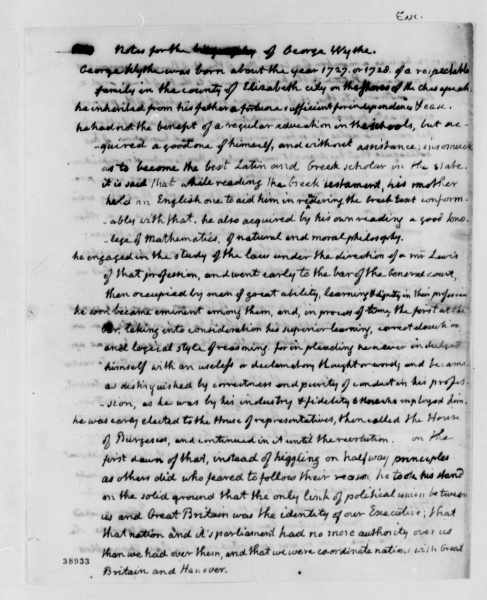 Enc.
Notes for the biography of George Wythe.
George Wythe was born about the year 1727. or 1728. of a respectable
family in the county of Elizabeth city on the shores of the Chesapeak.
he inherited from his father a fortune sufficient for independance & ease.
he had not the benefit of a regular education in the schools, but ac-
-quired a good one of himself, and without assistance; insomuch
as to become the best Latin and Greek scholar in the state.
it is said that while reading the Greek testament, his mother
held an English one to aid him in rendering the Greek text conform-
-ably with that. he also acquired by his own reading a good know-
-lege of Mathematics, of natural and moral philosophy.
he engaged in the study of the law under the direction of a mr Lewis
of that profession, and went early to the bar of the General court,
then occupied by men of great ability, learning & dignity in their profession
he soon became eminent among them, and, in process of time, the first at the
bar, taking into consideration his superior learning, correct elocution,
and logical style of reasoning. for in pleading he never indulged
himself with an useless or declamatory thought or word; and became
as distinguished by correctness and purity of conduct in his profes-
-sion, as he was by his industry & fidelity to those who employed him.
he was early elected to the House of representatives, then called the House
of Burgesses, and continued in it until the revolution. on the
first dawn of that, instead of higgling on half way principles
as others did who feared to follow their reason, he took his stand
on the solid ground that the only link of political union between
us and Great Britain was the identity of our Executive; that
that nation and it's parliament had no more authority over us
than we had over them, and that we were coordinate nations with Great
Britain and Hanover.
38933